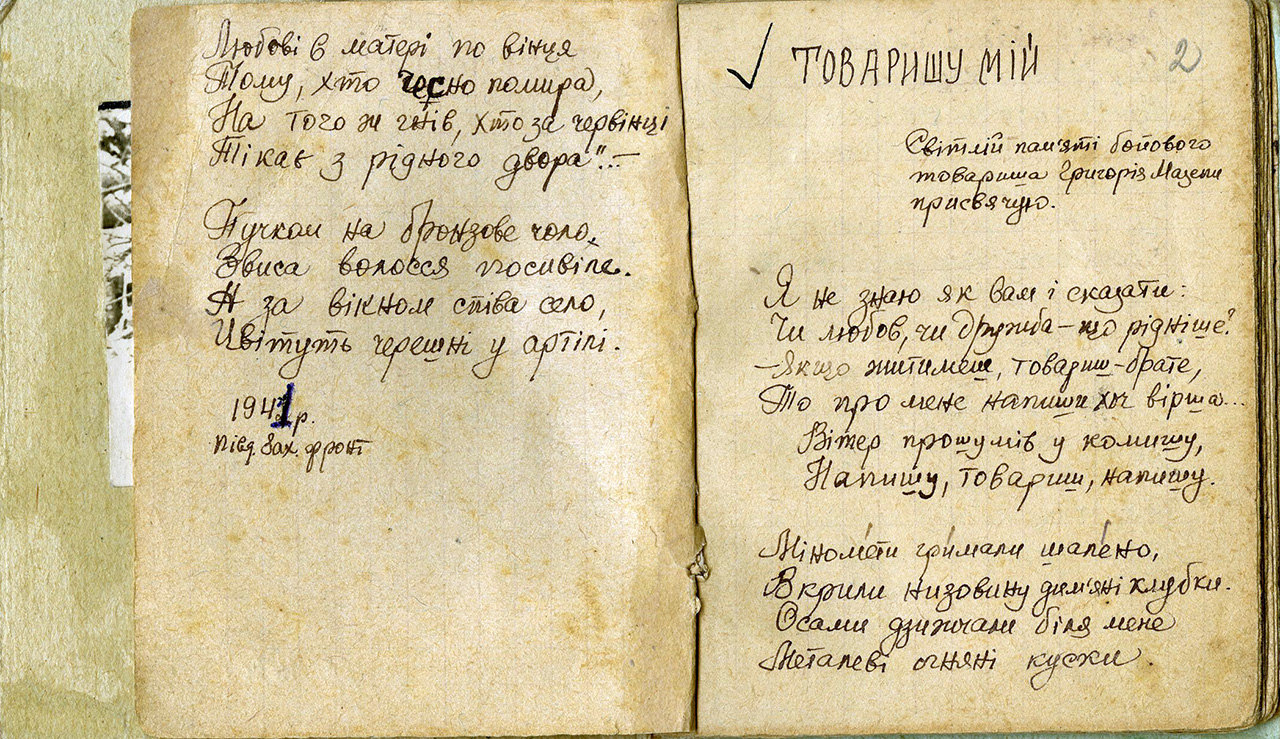 Любові б матері по вінця
Тому, хто чесно помира,
На того ж гнів, хто за червінці
Тікає з рідного двора"...—
Пучком на бронзове чоло
Звиса волосся посивіле.
А за вікном співа село,
Цвітуть черешні у артілі.
1941 р.
Півд. Зах. фронт
2
ТОВАРИШУ МІЙ
Світлій пам'яті бойового
товариша Григорія Мазепи
присвячую.
Я не знаю як вам і сказати:
Чи любов, чи дружба – що рідніше?
– Якщо житимеш, товариш-брате,
То про мене напиши хч вірша...
Вітер прошумів у комишу,
Напишу, товариш, напишу.
Міномéти гри́мали шалéно,
Вкрили низовину дим'яні клубки.
Осами дзижчали біля мене
Металеві огняні куски.